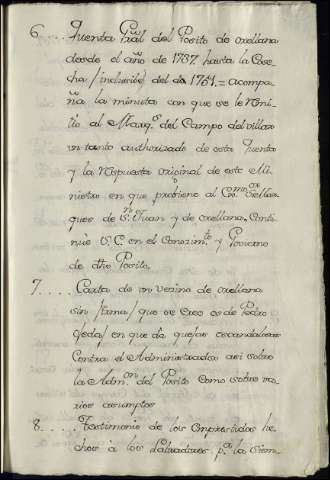 6.... Quenta Gral del Posito de orellana
desde el año de 1757 hasta la Cose-
cha /inclusibe/ del de 1761.= acompa-
ña la minuta con que se le rmi-
tio al Marqs del Campo del villar
un tanto authorizado de esta Quenta
y la Respuesta original de este Mi-
nistro en que previene al Exmo Sor
ques de Sn Juan y de orellana, Conti-
nue S.E. en el Conozimto y Govierno
de dho Posito.
7..... Carta de un vezino de orellana
sin /firma/ que se Cree es de Pedro
Ojeda/ en que dà quejas escandalosas
Contra el Administrador asi sobre
la Admon del Posito Como sobre va-
rios assumptos
8..... Testimonio de los Emprestidos he-
chos à los Labradores pa la Siem-